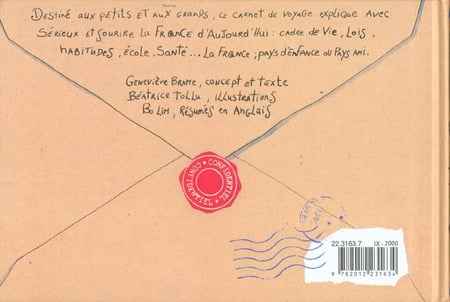 Destiné aux petits et aux grands, ce carnet de voyage explique avec
sérieux et sourire la France d'aujourd'hui : cadre de vie, lois,
habitudes, école, santé... La France ; pays d'enfance ou pays ami.
Geneviève Brame, concept et texte
Béatrice Tollu, illustrations
Bo Lim, résumés en anglais
CONFIDENTIEL
CONFIDENTIEL
22.3163.7 IX-2000
9 782012 231634